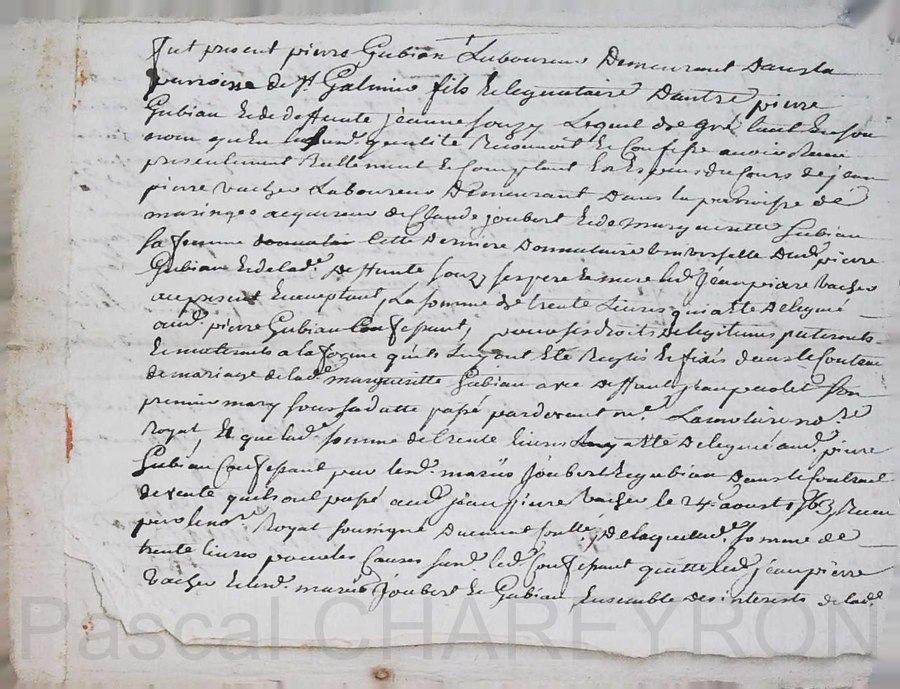 fut present pierre Gubian Laboureur Demeurant Dans la
parroisse de st Galmier fils Et legataire Dautre pierre
Gubian Et de deffunte jeanne Souzy Lequel de gré tant En son
nom qu'en lad. qualité Reconnoit Et Confesse avoir Receu
presentement Reellement Et Comptant En Especes du Cours de jean
pierre vacher Laboureur Demeurant Dans la parroisse de
maringes acquereur de Claude joubert Et de marguerite Gubian
sa femme Cette Derniere Donnataire universelle dud. pierre
Gubian Et de lad.e Deffunte Souzy ses pere Et mere led. Jean pierre vacher
acceptant, La somme de trente Livres qui a Eté Deleguée
aud. pierre Gubian Confessant, pour ses droits de legitime paternels
Et maternels a la forme qu'ils Luy ont Eté Reglés Et fixés dans le Contrat
de mariage de lad.e marguerite Gubian avec Deffunt jean son
premier mary sous sa datte passé pardevant me. no.re
Royal, Et que lad. somme de trente livres a Eté Deleguée aud. pierre
Gubian Confessant par lesd. mariés Joubert Et Gubian Dans le Contrat
de vente qu'ils ont passé aud. jean pierre vacher le 24. aoust 1763 Receu
par le no.re Royal soussigné Duement Deladite somme de
trente livres pour les Causes sus.d led. Confessant quitte led. jean pierre
vacher Et lesd. mariés Joubert Et Gubian, Ensemble des interests de lad.e
Pascal CHAREYRON